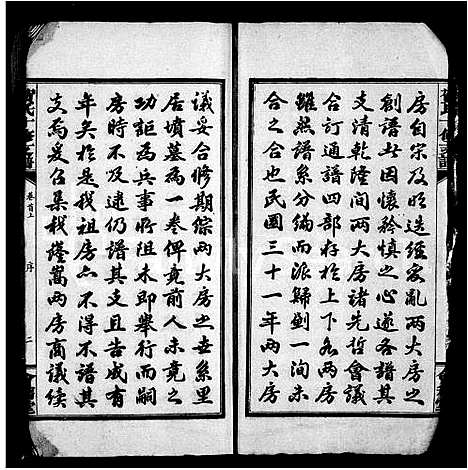 房自宋及明迭經寇亂兩大房
創譜此因懷矜慎之心遂各譜其
支清乾隆間兩大房諸先哲會議
合訂通譜四部存於上下各兩房
雖然譜系分編而派歸劃一洵未
合之合也民國三十一年兩大房
議妥合修期綜兩大房之世系里
居墳墓為一卷俾竟前人未竟之
功詎為兵事所阻未即舉行而嗣
房時不及逮仍譜其支且告成有
年矣於是我祖房亦不得不譜其
支焉爰召集我謹嵩兩房商議續
卷首上
序